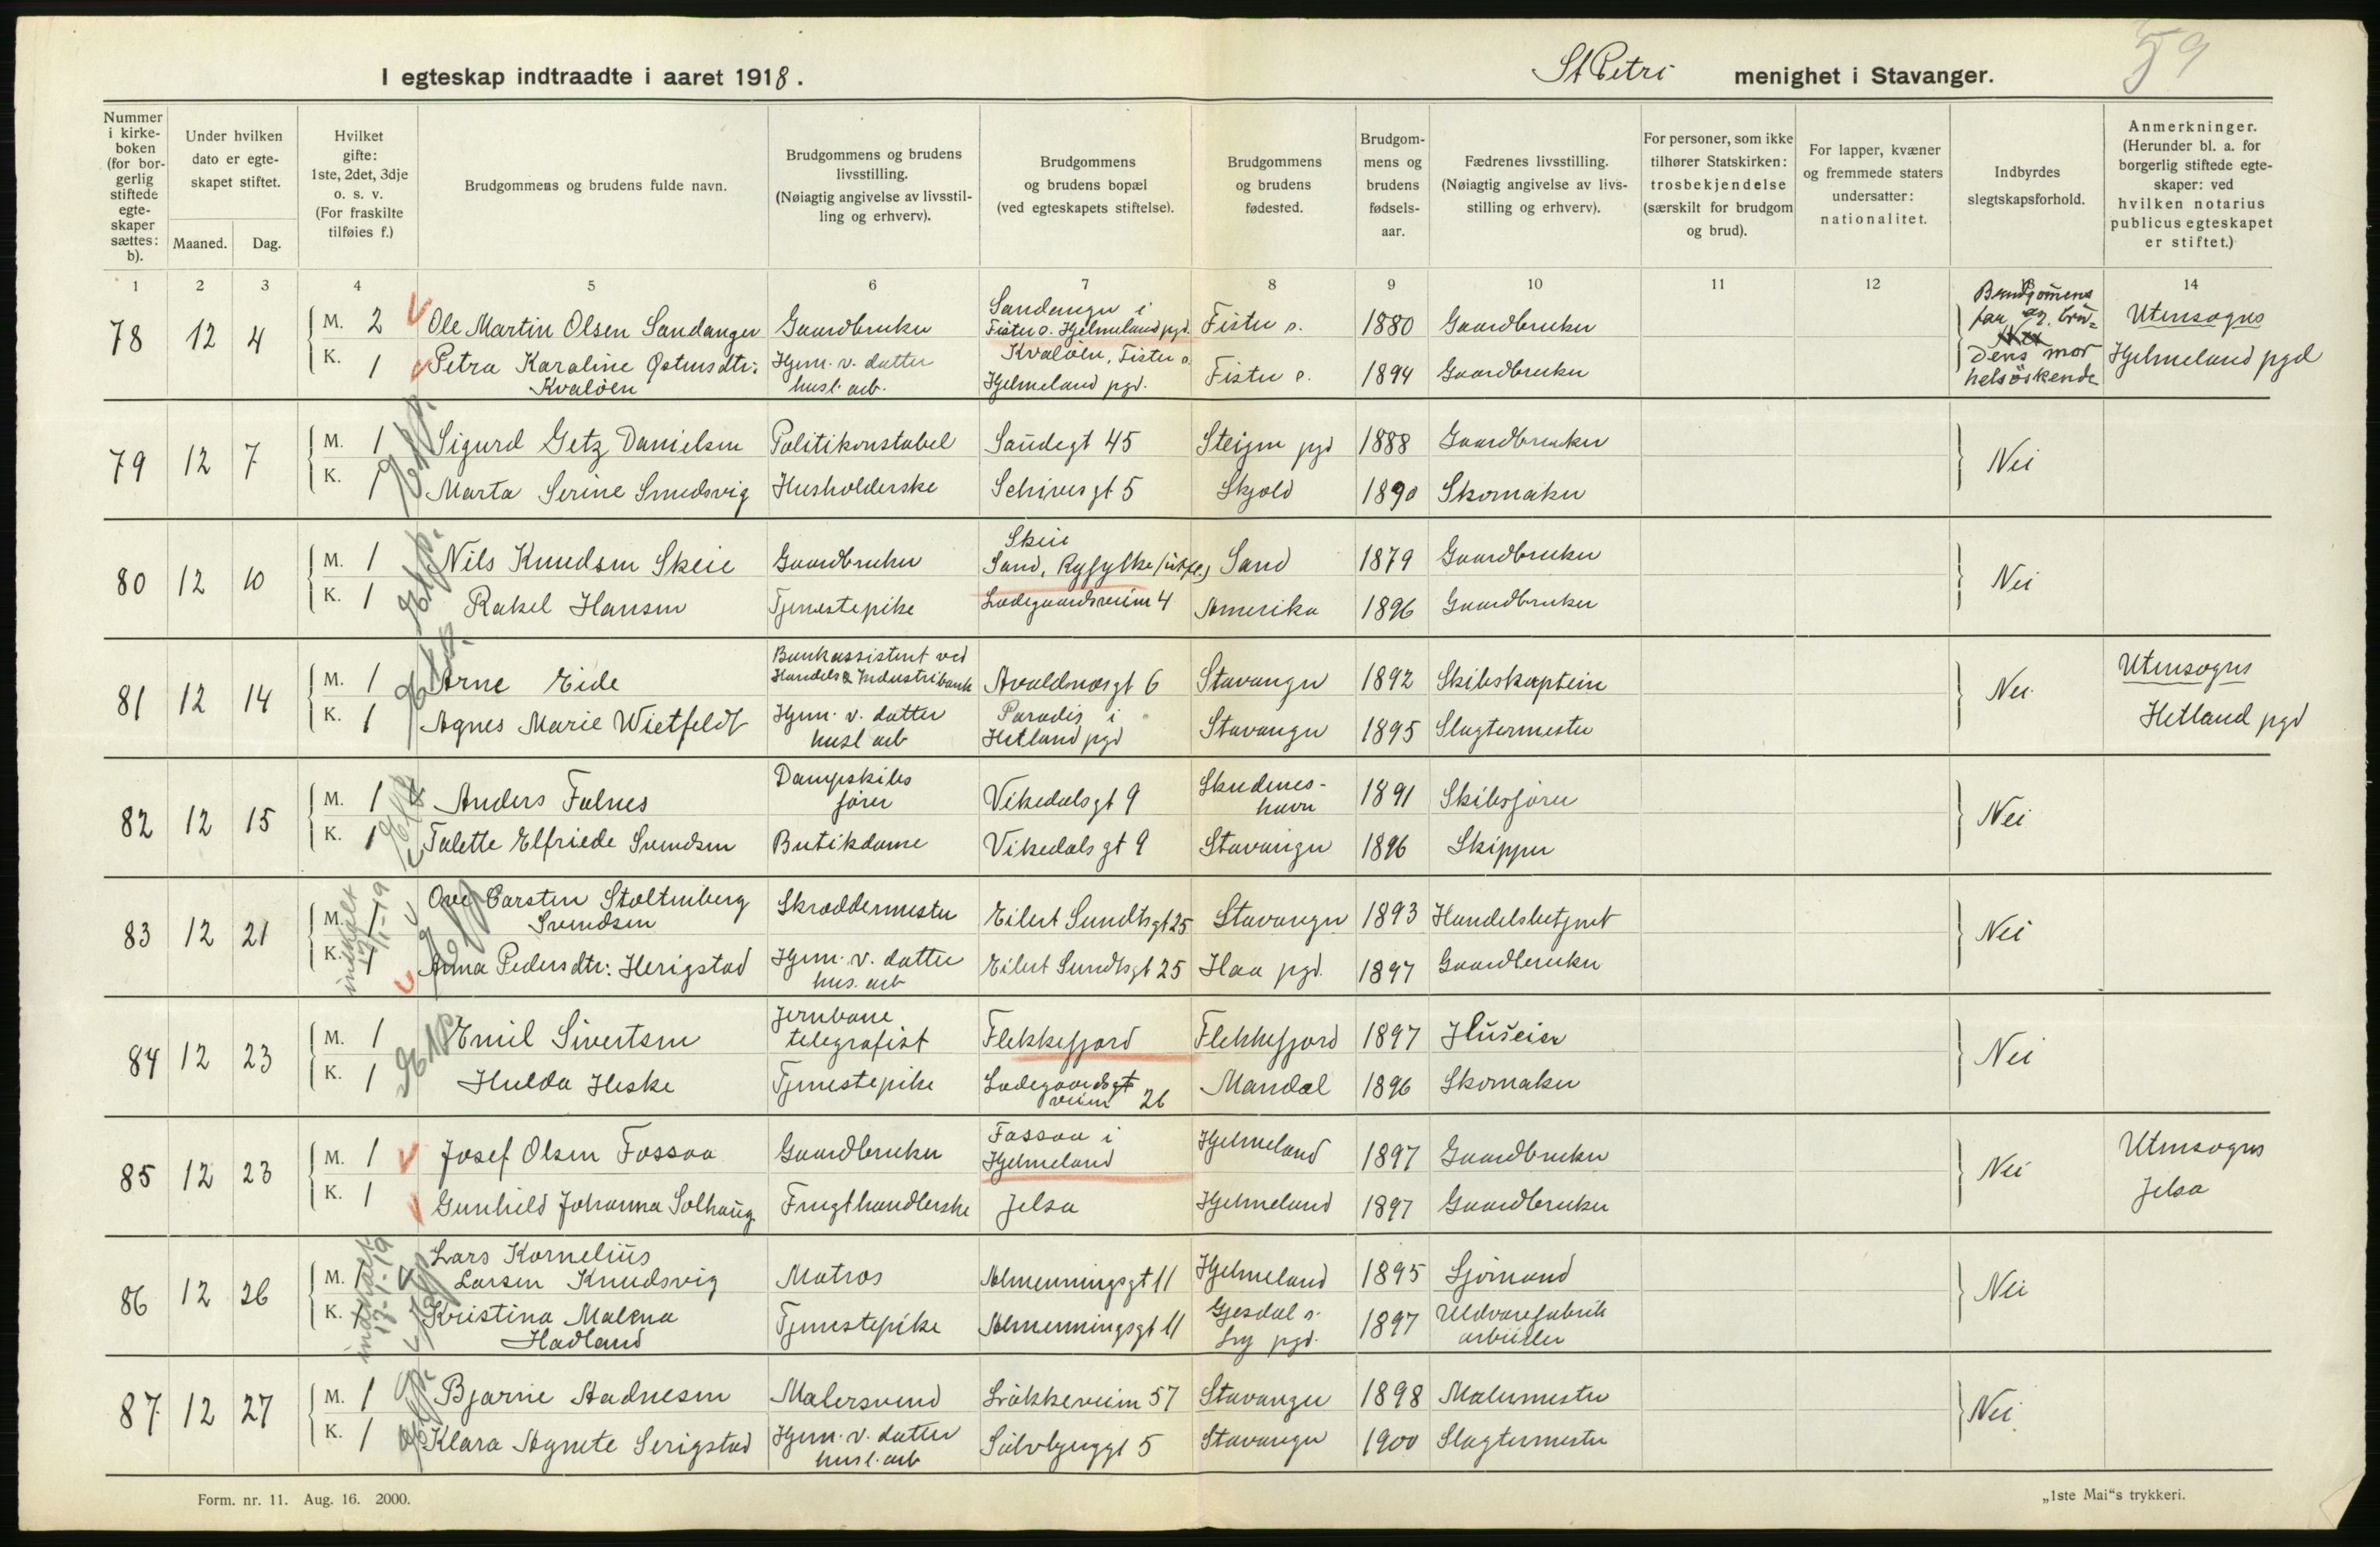 59
I egteskap indtraadte i aaret 1918.
St Petri menighet i Stavanger.
Nummer i kirke-boken (for bor-gerlig stiftede egte-skaper sættes: b).
Under hvilken dato er egte-skapet stiftet.
Maaned. Dag.
Hvilket gifte: 1ste, 2det, 3dje o. s. v. (For fraskilte tilføies f.)
Brudgommens og brudens fulde navn.
Brudgommens og brudens livsstilling. (Nøiagtig angivelse av livsstil-ling og erhverv).
Brudgommens og brudens bopæl (ved egteskapets stiftelse).
Brudgommens og brudens fødested.
Brudgom-mens og brudens fødsels-aar.
Fædrenes livsstilling. (Nøiagtig angivelse av livs-stilling og erhverv).
For personer, som ikke tilhører Statskirken: trosbekjendelse (særskilt for brudgom og brud).
For lapper, kvæner og fremmede staters undersatter: nationalitet.
Indbyrdes slegtskapsforhold.
Anmerkninger. (Herunder bl. a. for borgerlig stiftede egte-skaper: ved hvilken notarius publicus egteskapet er stiftet.)
1 2 3 4 5 6 7 8 9 10 11 12 14
78 12 4 M. 2 Ole Martin Olsen Sandanger Gaardbruker Sandanger i Fister s. Hjelmeland pgd. Fister s. 1880 Gaardbruker Brudgomens far og brudens mor helsöskende Utensogns Hjelmeland pgd
K. 1 Petra Karaline Østensdtr: Kvaløen Hjem. v. datter husl. arb. Kvaløen, Fister s. Hjelmeland pgd. Fister s. 1894 Gaardbruker
79 12 7 M. 1 Sigurd Getz Danielsen Politikonstabel Sandegt 45 Steigen pgd 1888 Gaardbruker Nei
K. 1 Marta Serine Smedsvig Husholderske Schivesgt 5 Skjold 1890 Skomaker
80 12 10 M. 1 Nils Knudsen Skeie Gaardbruker Skeie Sand, Ryfylke Sand 1879 Gaardbruker Nei
K. 1 Rakel Hansen Tjenestepike Ladegaardsveien 4 Amerika 1896 Gaardbruker
81 12 14 M. 1 Arne Eide Bankassistent ved Handels & Industribank Avaldsnesgt 6 Stavanger 1892 Skibskaptein Nei Utensogns Hetland pgd
K. 1 Agnes Marie Wietfeldt Hjem. v. datter husl arb Paradis i Hetland pgd Stavanger 1895 Slagtermester
82 12 15 M. 1 Anders Falnes Dampskibsfører Vikedalsgt 9 Skudenes-havn 1891 Skibsfører Nei
K. 1 Talette Elfriede Svendsen Butikdame Vikedalsgt 9 Stavanger 1896 Skipper
83 12 21 M. 1 Ove Carsten Stoltenberg Svendsen Skræddermester Eilert Sundtsgt 25 Stavanger 1893 Handelsbetjent Nei
K. 1 Anna Pedersdtr: Herigstad Hjem. v. datter hus. arb Eilert Sundtsgt 25 Haa pgd. 1897 Gaardbruker
84 12 23 M. 1 Emil Sivertsen Jernbane telegrafist Flekkefjord Flekkefjord 1897 Huseier Nei
K. 1 Hulda Heske Tjenestepike Ladegaardsveien 26 Mandal 1896 Skomaker
85 12 23 M. 1 Josef Olsen Fossaa Gaardbruker Fossaa i Hjelmeland Hjelmeland 1897 Gaardbruker Nei Utensogns Jelsa
K. 1 Gunhild Johanna Solhaug Frugthandlerske Jelsa Hjelmeland 1897 Gaardbruker
86 12 26 M. 1 Lars Kornelius Larsen Knudsvig Matros Almenningsgt 11 Hjelmeland 1895 Sjömand Nei
K. 1 Kristina Malena Hadland Tjenestepike Almenningsgt 11 Gjesdal s. Ly pgd. 1897 Uldvarefabrik arbeider
87 12 27 M. 1 Bjarne Aadnesen Malersvend Løkkeveien 57 Stavanger 1898 Malermester Nei
K. 1 Klara Agnete Serigstad Hjem. v. datter husl. arb Sølvbyggt 5 Stavanger 1900 Slagtermester
Form. nr. 11. Aug. 16. 2000.
„1ste Mai“s trykkeri.